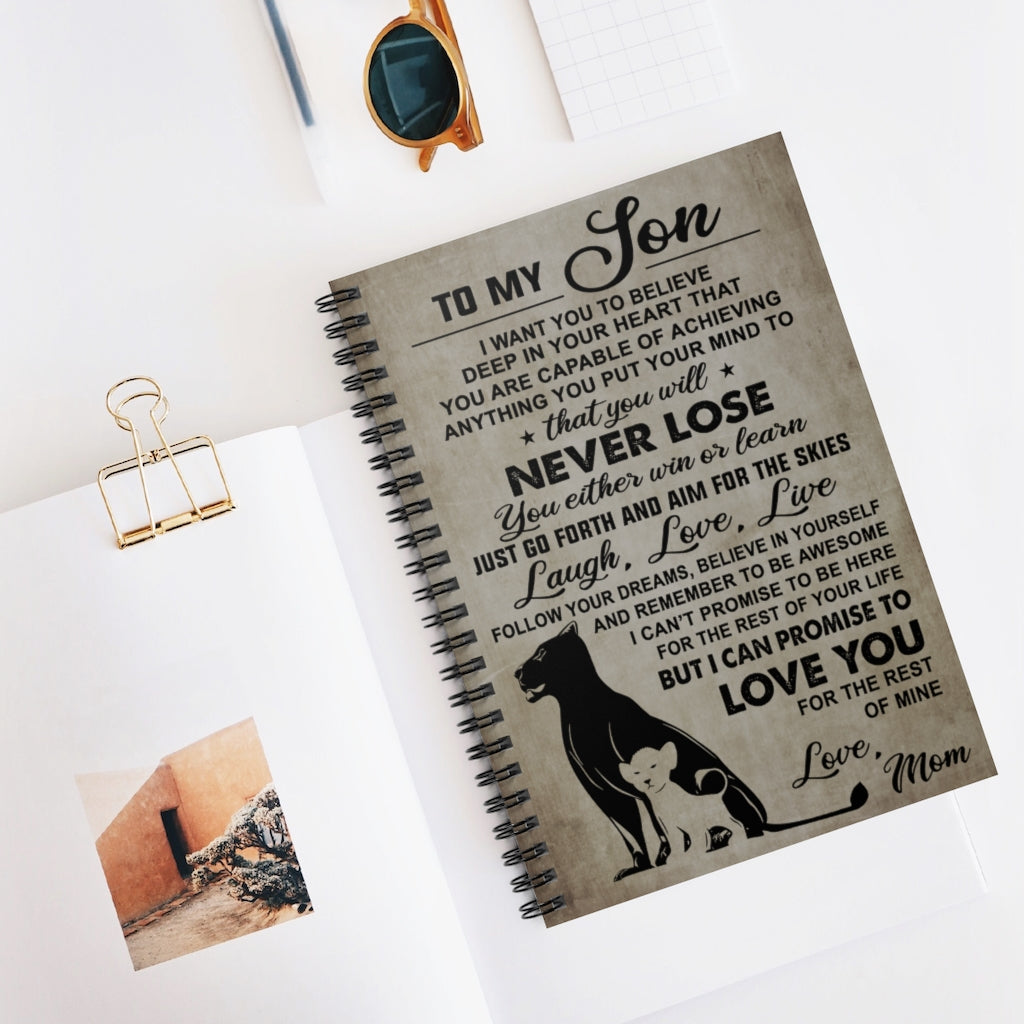 TO MY Son
I WANT YOU TO BELIEVE
DEEP IN YOUR HEART THAT
YOU ARE CAPABLE OF ACHIEVING
ANYTHING YOU PUT YOUR MIND TO
that you will
NEVER LOSE
You either win or learn
JUST GO FORTH AND AIM FOR THE SKIES
Laugh, Love, Live
FOLLOW YOUR DREAMS, BELIEVE IN YOURSELF
AND REMEMBER TO BE AWESOME
I CAN'T PROMISE TO BE HERE
FOR THE REST OF YOUR LIFE
BUT I CAN PROMISE TO
LOVE YOU
FOR THE REST
OF MINE
Love, Mom